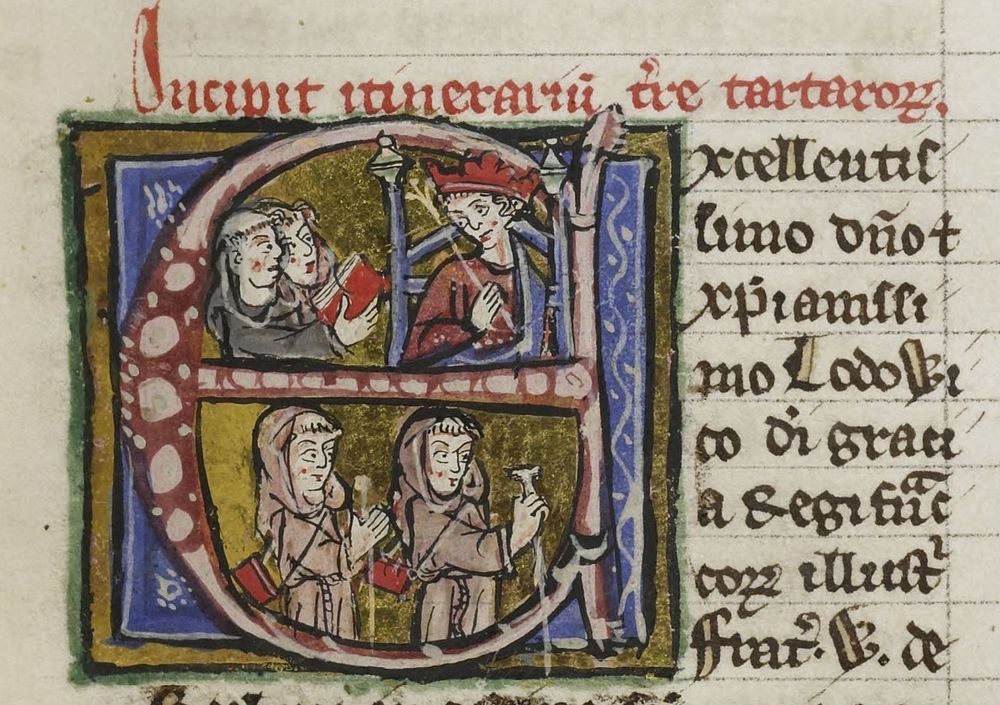 Incipit itinerariũ t̃re tartaroꝝ.
Excellentis
simo dño ⁊
xp̃ianissi
mo Lodowi
co dĩ graci
a Regi franc̃
coꝝ illustr̃
ffrat̃. W. de